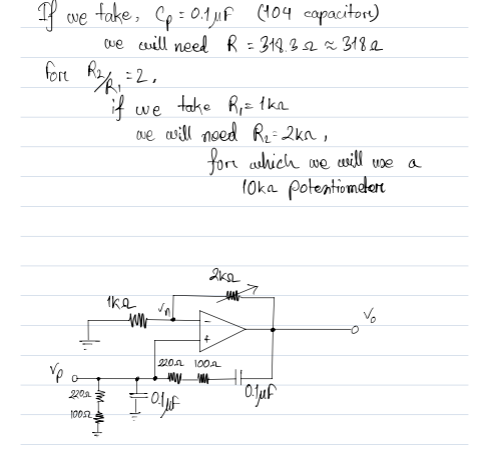 If we take, Cp = 0.1μF (104 capacitor)
we will need R = 318.3Ω ≈ 318Ω
For R₂/R₁ = 2,
if we take R₁ = 1kΩ
we will need R₂ = 2kΩ,
for which we will use a
10kΩ potentiometer
2kΩ
1kΩ
Vn
Vo
-
+
220Ω 100Ω
Vp
0.1μF
220Ω
0.1μF
100Ω